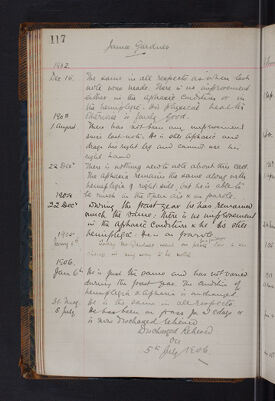 117
James Gardner
1902.
Dec 16. The same in all respects as when last
note was made. There is no improvement
either in the aphasic condition or in
the hemiplegia. His physical health
otherwise is fairly good.
1903
1 August There has not been any improvement
since last note. He is still aphasic and
drags his right leg and cannot use his
right hand.
22 Decr There is nothing new to note about this case.
The aphasia remains the same along with
hemiplegia of right side, but he is able to
be much in the open air & on parole.
1904
22 Decr During the past year he has remained
much the same. There is no improvement
in the aphasic condition & he is also
hemiplegic. He is on parole.
1905
1906.
Jany 6th He is just the same and has not varied
during the past year. The condition of
hemiplegia & aphasia is unchanged.
He is the same in all respects.
5 July He has been on pass for days &
is now Discharged Relieved
Discharged Relieved
On
5th July 1906.